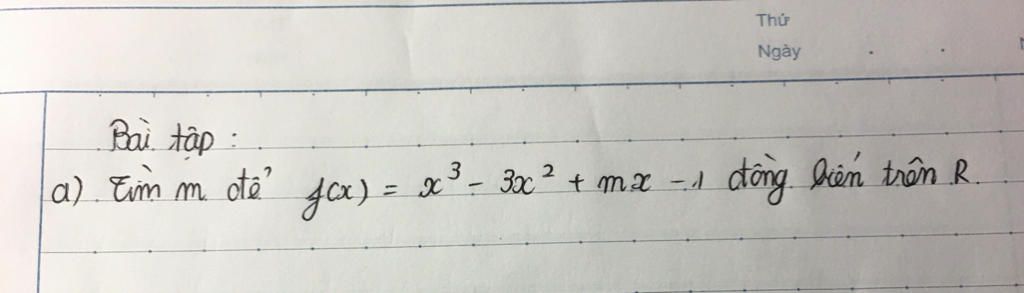 Thứ
Ngày
Bài tập :
a) Tìm m để f(x) = x³ - 3x² + mx - 1 đồng biến trên R.